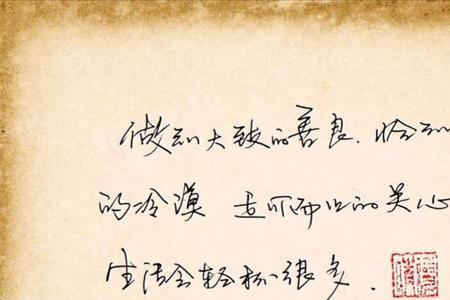 做到大致的善良.恰到
的冷漠 适可而止的关心
生活会轻松很多.